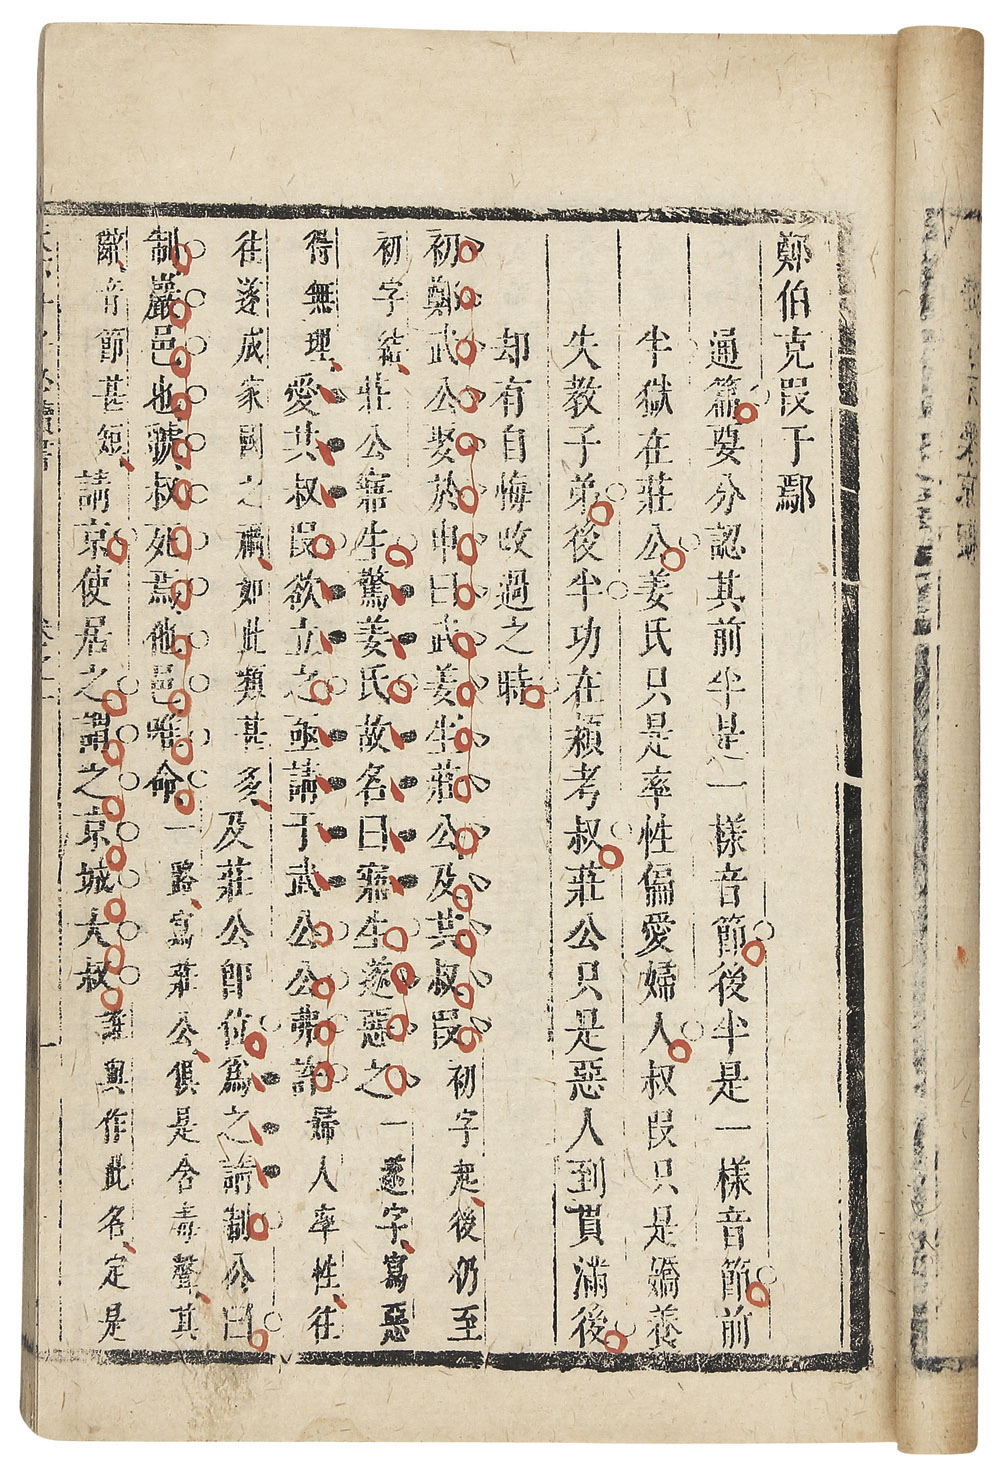 鄭伯克叚于鄢
通篇要分認其前半是一樣音節後半是一樣音節前
半獄在莊公姜氏只是率性偏愛婦人叔叚只是嬌養
失教子弟後半功在頴考叔莊公只是惡人到貫滿後
却有自悔改過之時
初鄭武公娶於申曰武姜生莊公及共叔叚初字起後仍至
初字結莊公寤生驚姜氏故名曰寤生遂惡之一遂字寫惡
得無理愛共叔叚欲立之亟請于武公公弗許婦人率性往
往遂成家國之禍如此類甚多及莊公卽位爲之請制公曰
制巖邑也虢叔死焉他邑唯命一路寫莊公俱是含毒聲其
辭音節甚短請京使居之謂之京城大叔誰與作此名定是